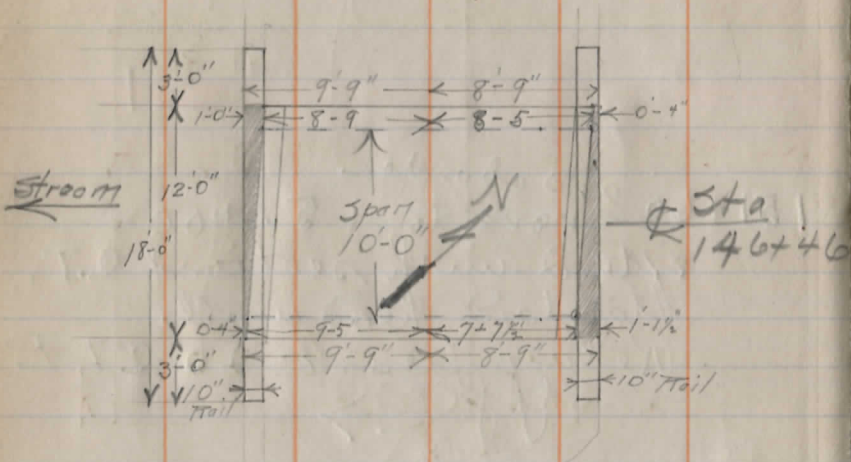 3'-0"
9'-9" 8'-9"
1'-0" 8-9 8-5 0'-4"
Stroom
12'-0"
Span
10'-0"
N
18'-0"
℄ Sta
146+46
0'-4" 9-5 7-7½ 1'-1½"
3'-0"
9'-9" 8'-9"
10"
Rail
10" Rail